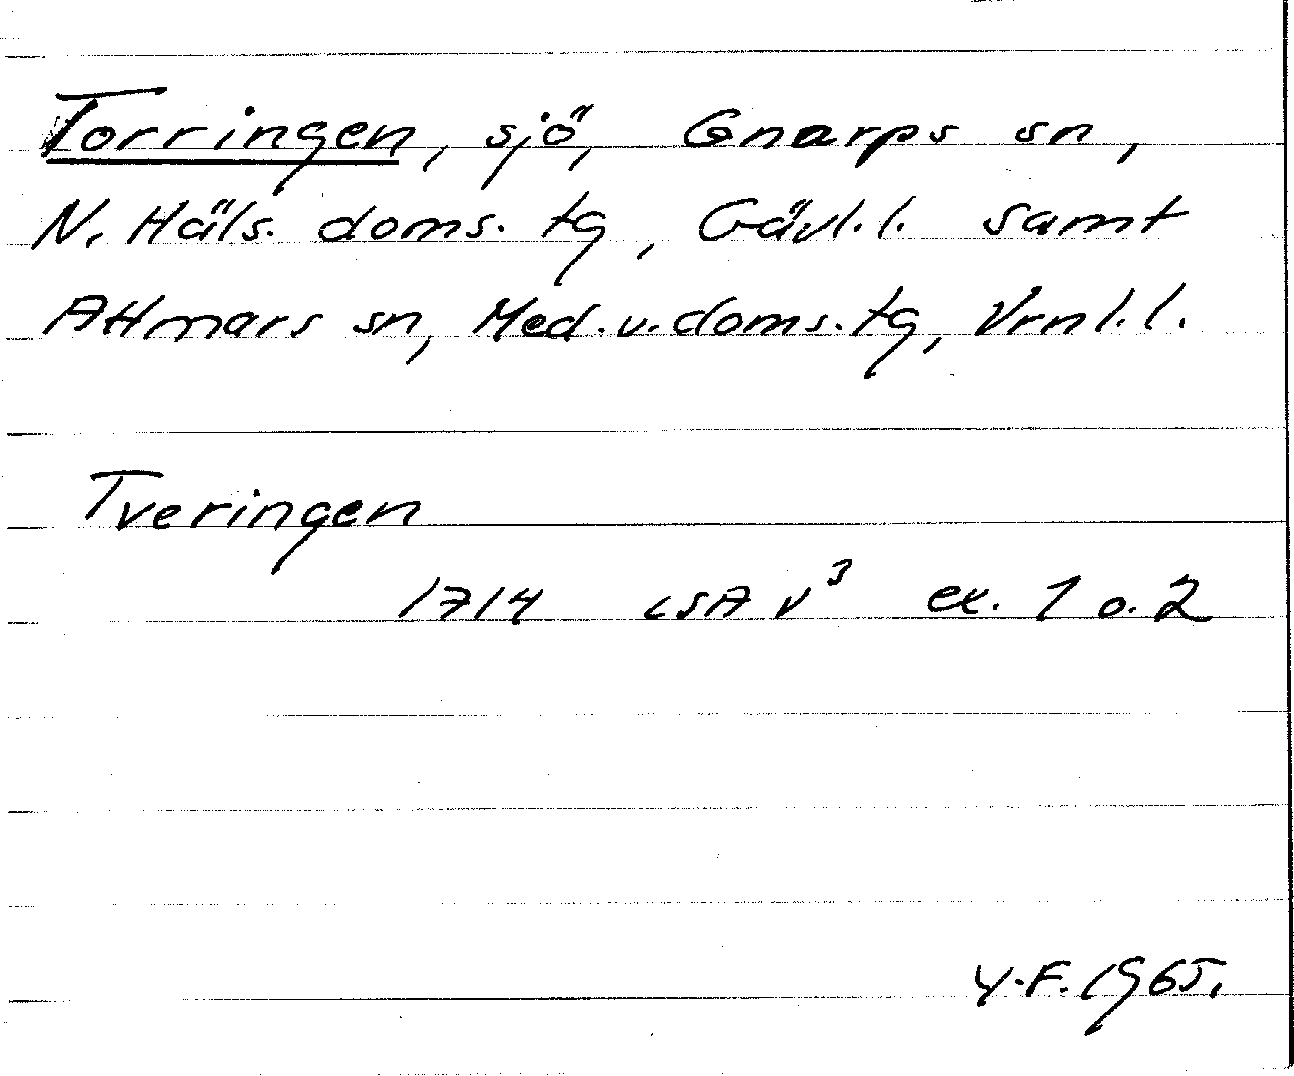 Torringen, sjö, Gnarps sn,
N. Häls. doms. tg, Gävl.l. samt
Attmars sn, Med.v.doms.tg, Vrnl.l.
Tveringen
1714 LSA V³ ex. 1 o. 2
Y.F. 1965.